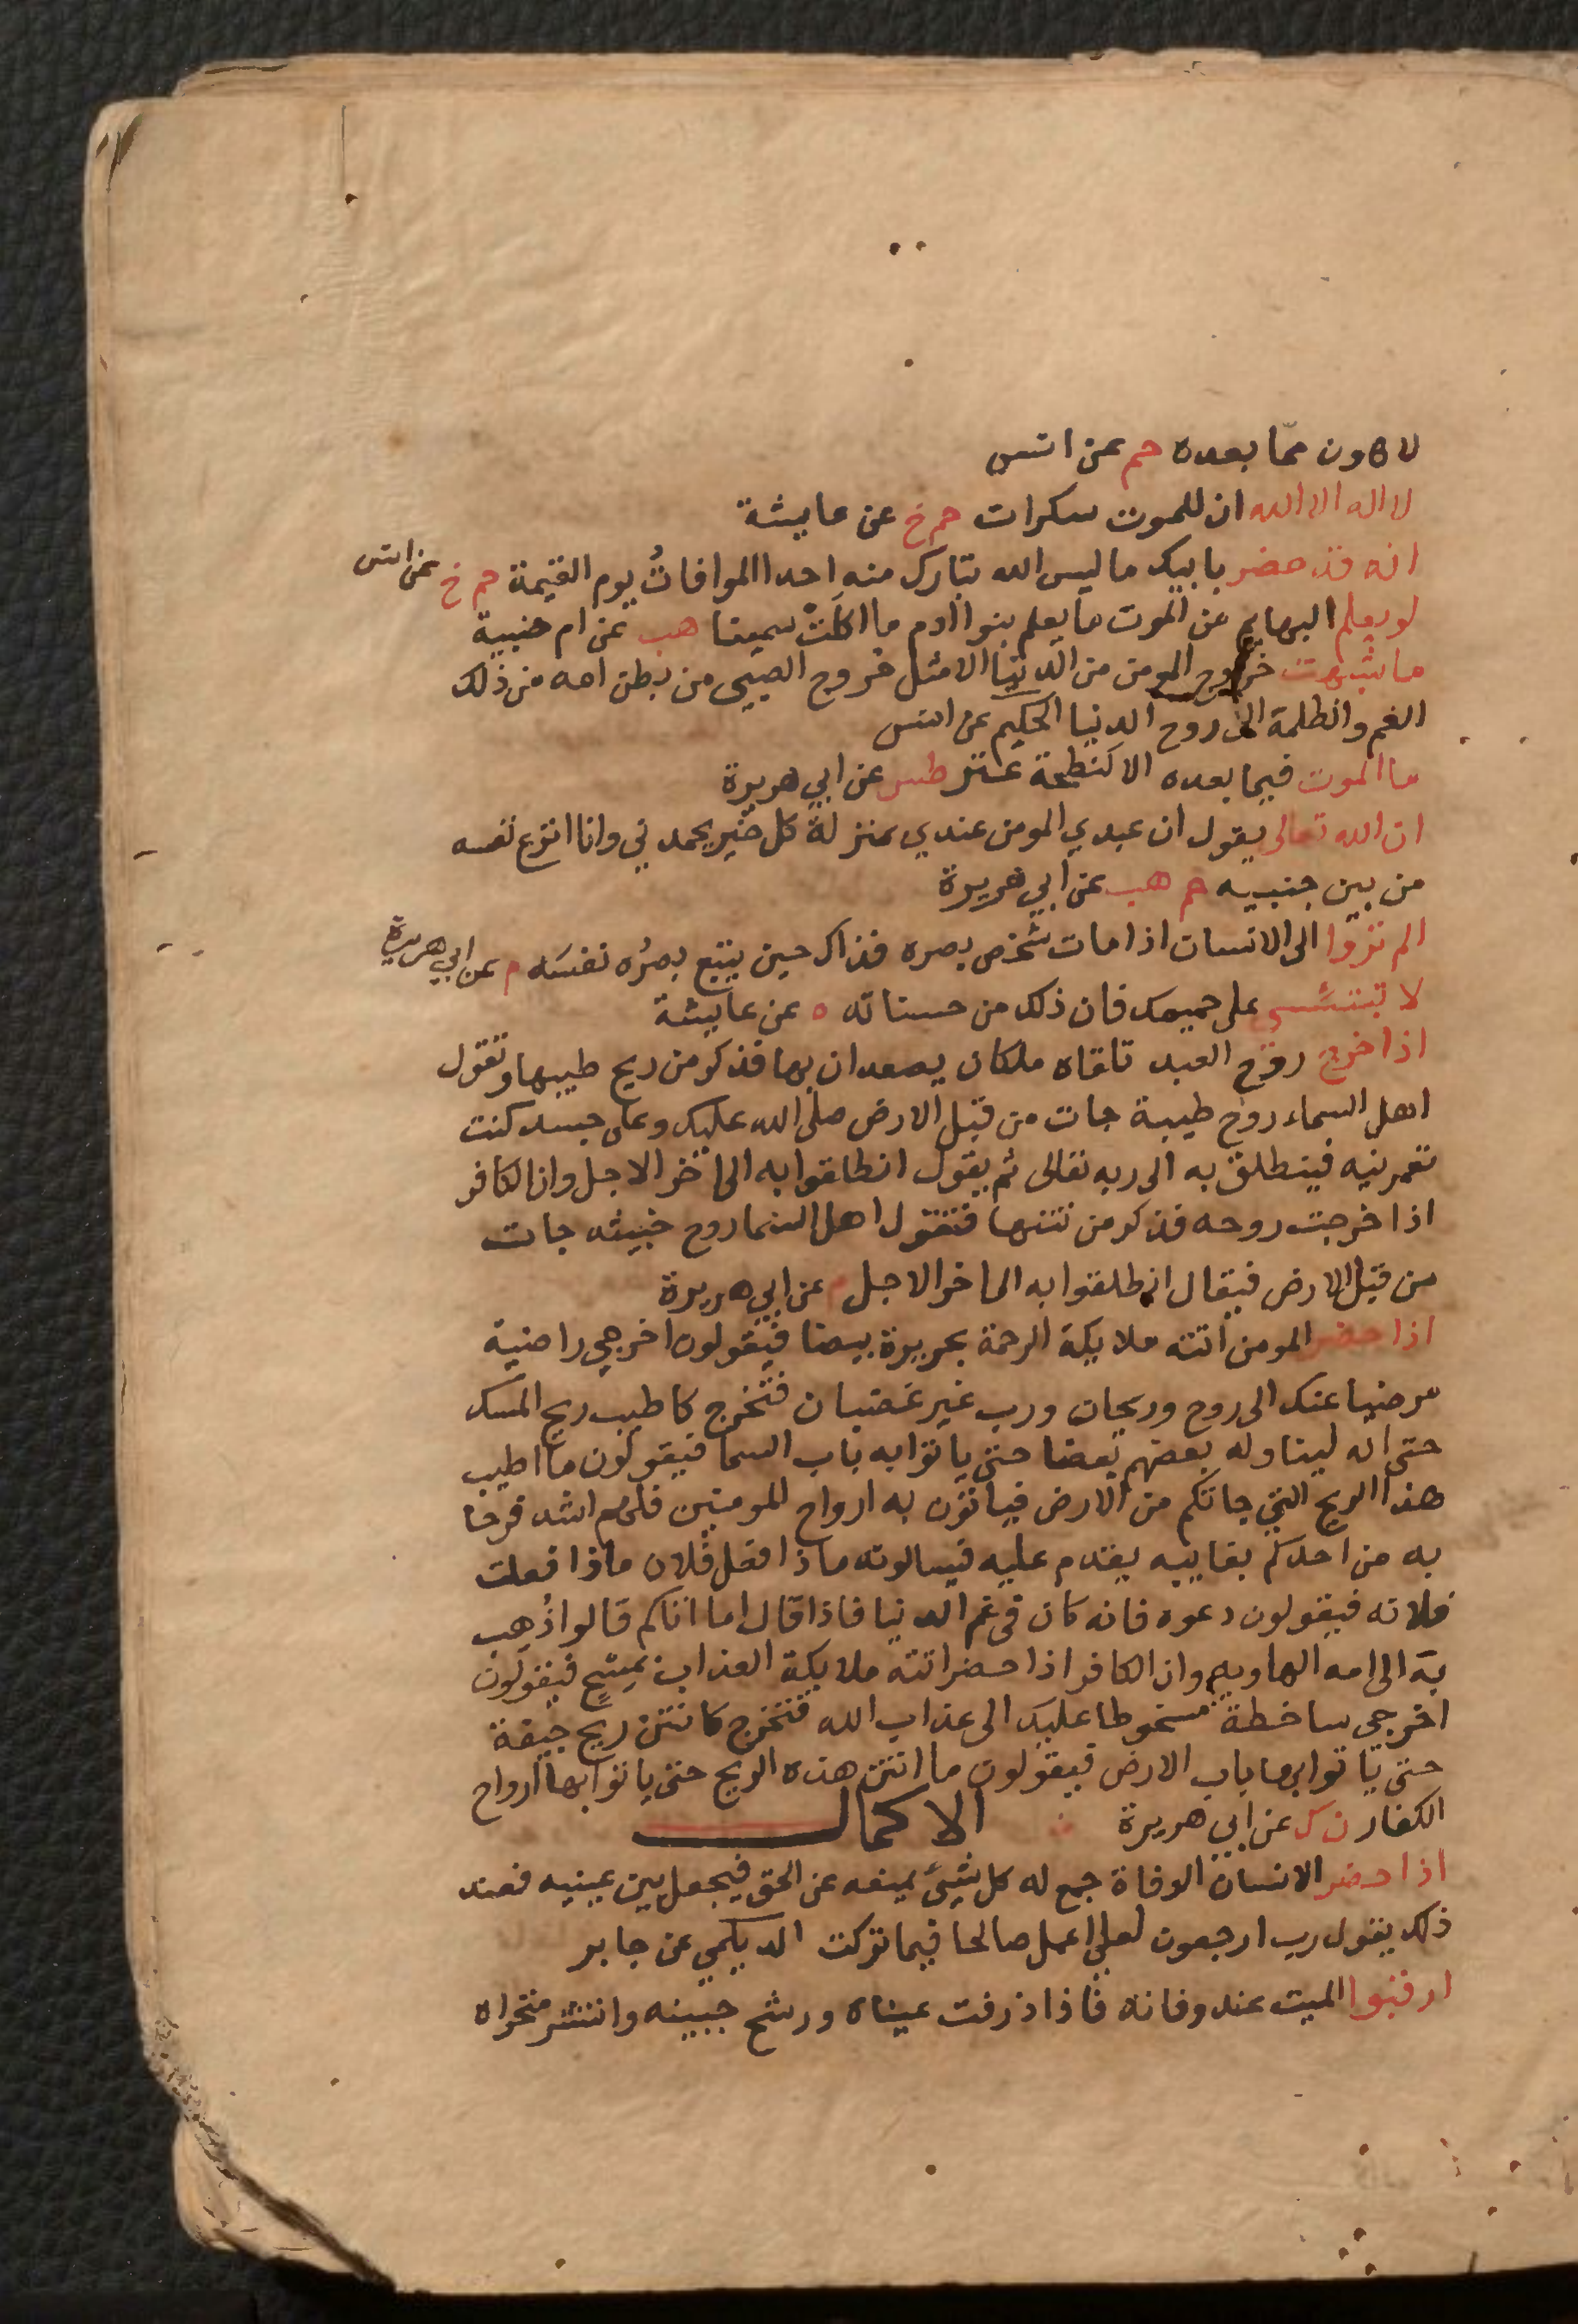 لاهون مما بعده حم عن انس
لا اله الا الله ان للموت سكرات حم خ عن عايشة
انه قد حضر بابيك ما ليس الله بتارك منه احدا الموافاتُ يوم القيمة حم خ عن انس
لو يعلم البهايم من الموت ما يعلم بنوا ادم ما اكلت سمينا هب عن ام حبيبة
ما شبهت خروج المومن من الدنيا الا مثل خروج الصبي من بطن امه من ذلك
الغم والظلمة الى روح الدنيا الحكيم عن انس
ما الموت فيما بعده الا كنطحة عنز طس عن ابي هريرة
ان الله تعالى يقول ان عبدي المومن عندي بمنزلة كل خير يحمدني وانا انزع نفسه
من بين جنبيه حم هب عن ابي هريرة
الم تروا الى الانسان اذا مات شخص بصره فذاك حين يتبع بصرُه نفسَه م عن ابي هريرة
لا تبتئسي على حميمك فان ذلك من حسناته ه عن عايشة
اذا خرج روح العبد تلقاه ملكان يصعدان بها فذكر من ريح طيبها وتقول
اهل السماء روح طيبة جات من قبل الارض صلى الله عليك وعلى جسد كنت
تعمرينه فينطلق به الى ربه تعالى ثم يقول انطلقوا به الى اخر الاجل وان الكافر
اذا خرجت روحه فذكر من نتنها فتقول اهل السما روح خبيثه جات
من قبل الارض فيقال انطلقوا به الى اخر الاجل م عن ابي هريرة
اذا حضر المومن اتته ملايكة الرحمة بحريرة بيضا فيقولون اخرجي راضية
مرضيا عنك الى روح وريحان ورب غير غضبان فتخرج كاطيب ريح المسك
حتى انه ليناوله بعضهم بعضا حتى ياتوا به باب السما فيقولون ما اطيب
هذا الريح التي جاتكم من الارض فياتون به ارواح المومنين فلهم اشد فرحا
به من احدكم بغايبه يقدم عليه فيسالونه ماذا فعل فلان ماذا فعلت
فلانه فيقولون دعوه فانه كان في غم الدنيا فاذا قال اما اتاكم قالوا ذُهِب
به الى امه الهاويه وان الكافر اذا حضر اتته ملايكة العذاب بمسح فيقولون
اخرجي ساخطة مسخوطا عليك الى عذاب الله فتخرج كانتن ريح جيفة
حتى ياتوا بها باب الارض فيقولون ما انتن هذه الريح حتى ياتوا بها ارواح
الكفار ن ك عن ابي هريرة الاكمال
اذا حضر الانسان الوفاة جمع له كل شيئ يمنعه عن الحق فيجعل بين عينيه فعند
ذلك يقول رب ارجعون لعلي اعمل صالحا فيما تركت الديلمي عن جابر
ارقبوا الميت عند وفاته فاذا ذرفت عيناه ورشح جبينه وانتشر منخراه